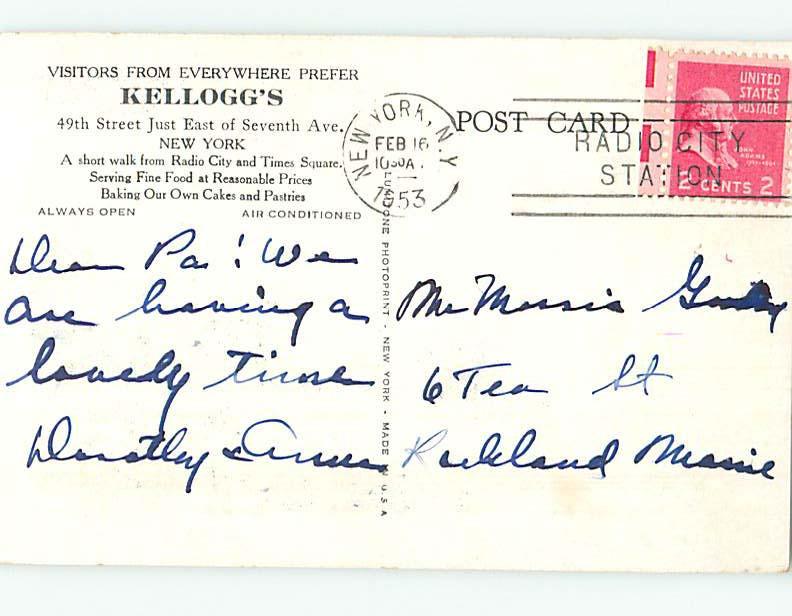 VISITORS FROM EVERYWHERE PREFER
KELLOGG'S
49th Street Just East of Seventh Ave.
NEW YORK
A short walk from Radio City and Times Square.
Serving Fine Food at Reasonable Prices
Baking Our Own Cakes and Pastries
ALWAYS OPEN AIR CONDITIONED
Dear Pa! We
are having a
lovely time
Dorothy & Anna
NEW YORK, N.Y.
FEB 16
1953
POST CARD
RADIO CITY
STATION
UNITED
STATES
POSTAGE
JOHN
ADAMS
2 CENTS 2
PHOTOPRINT - NEW YORK - MADE IN U.S.A
Mr Morris
6 Tea St
Rockland Maine